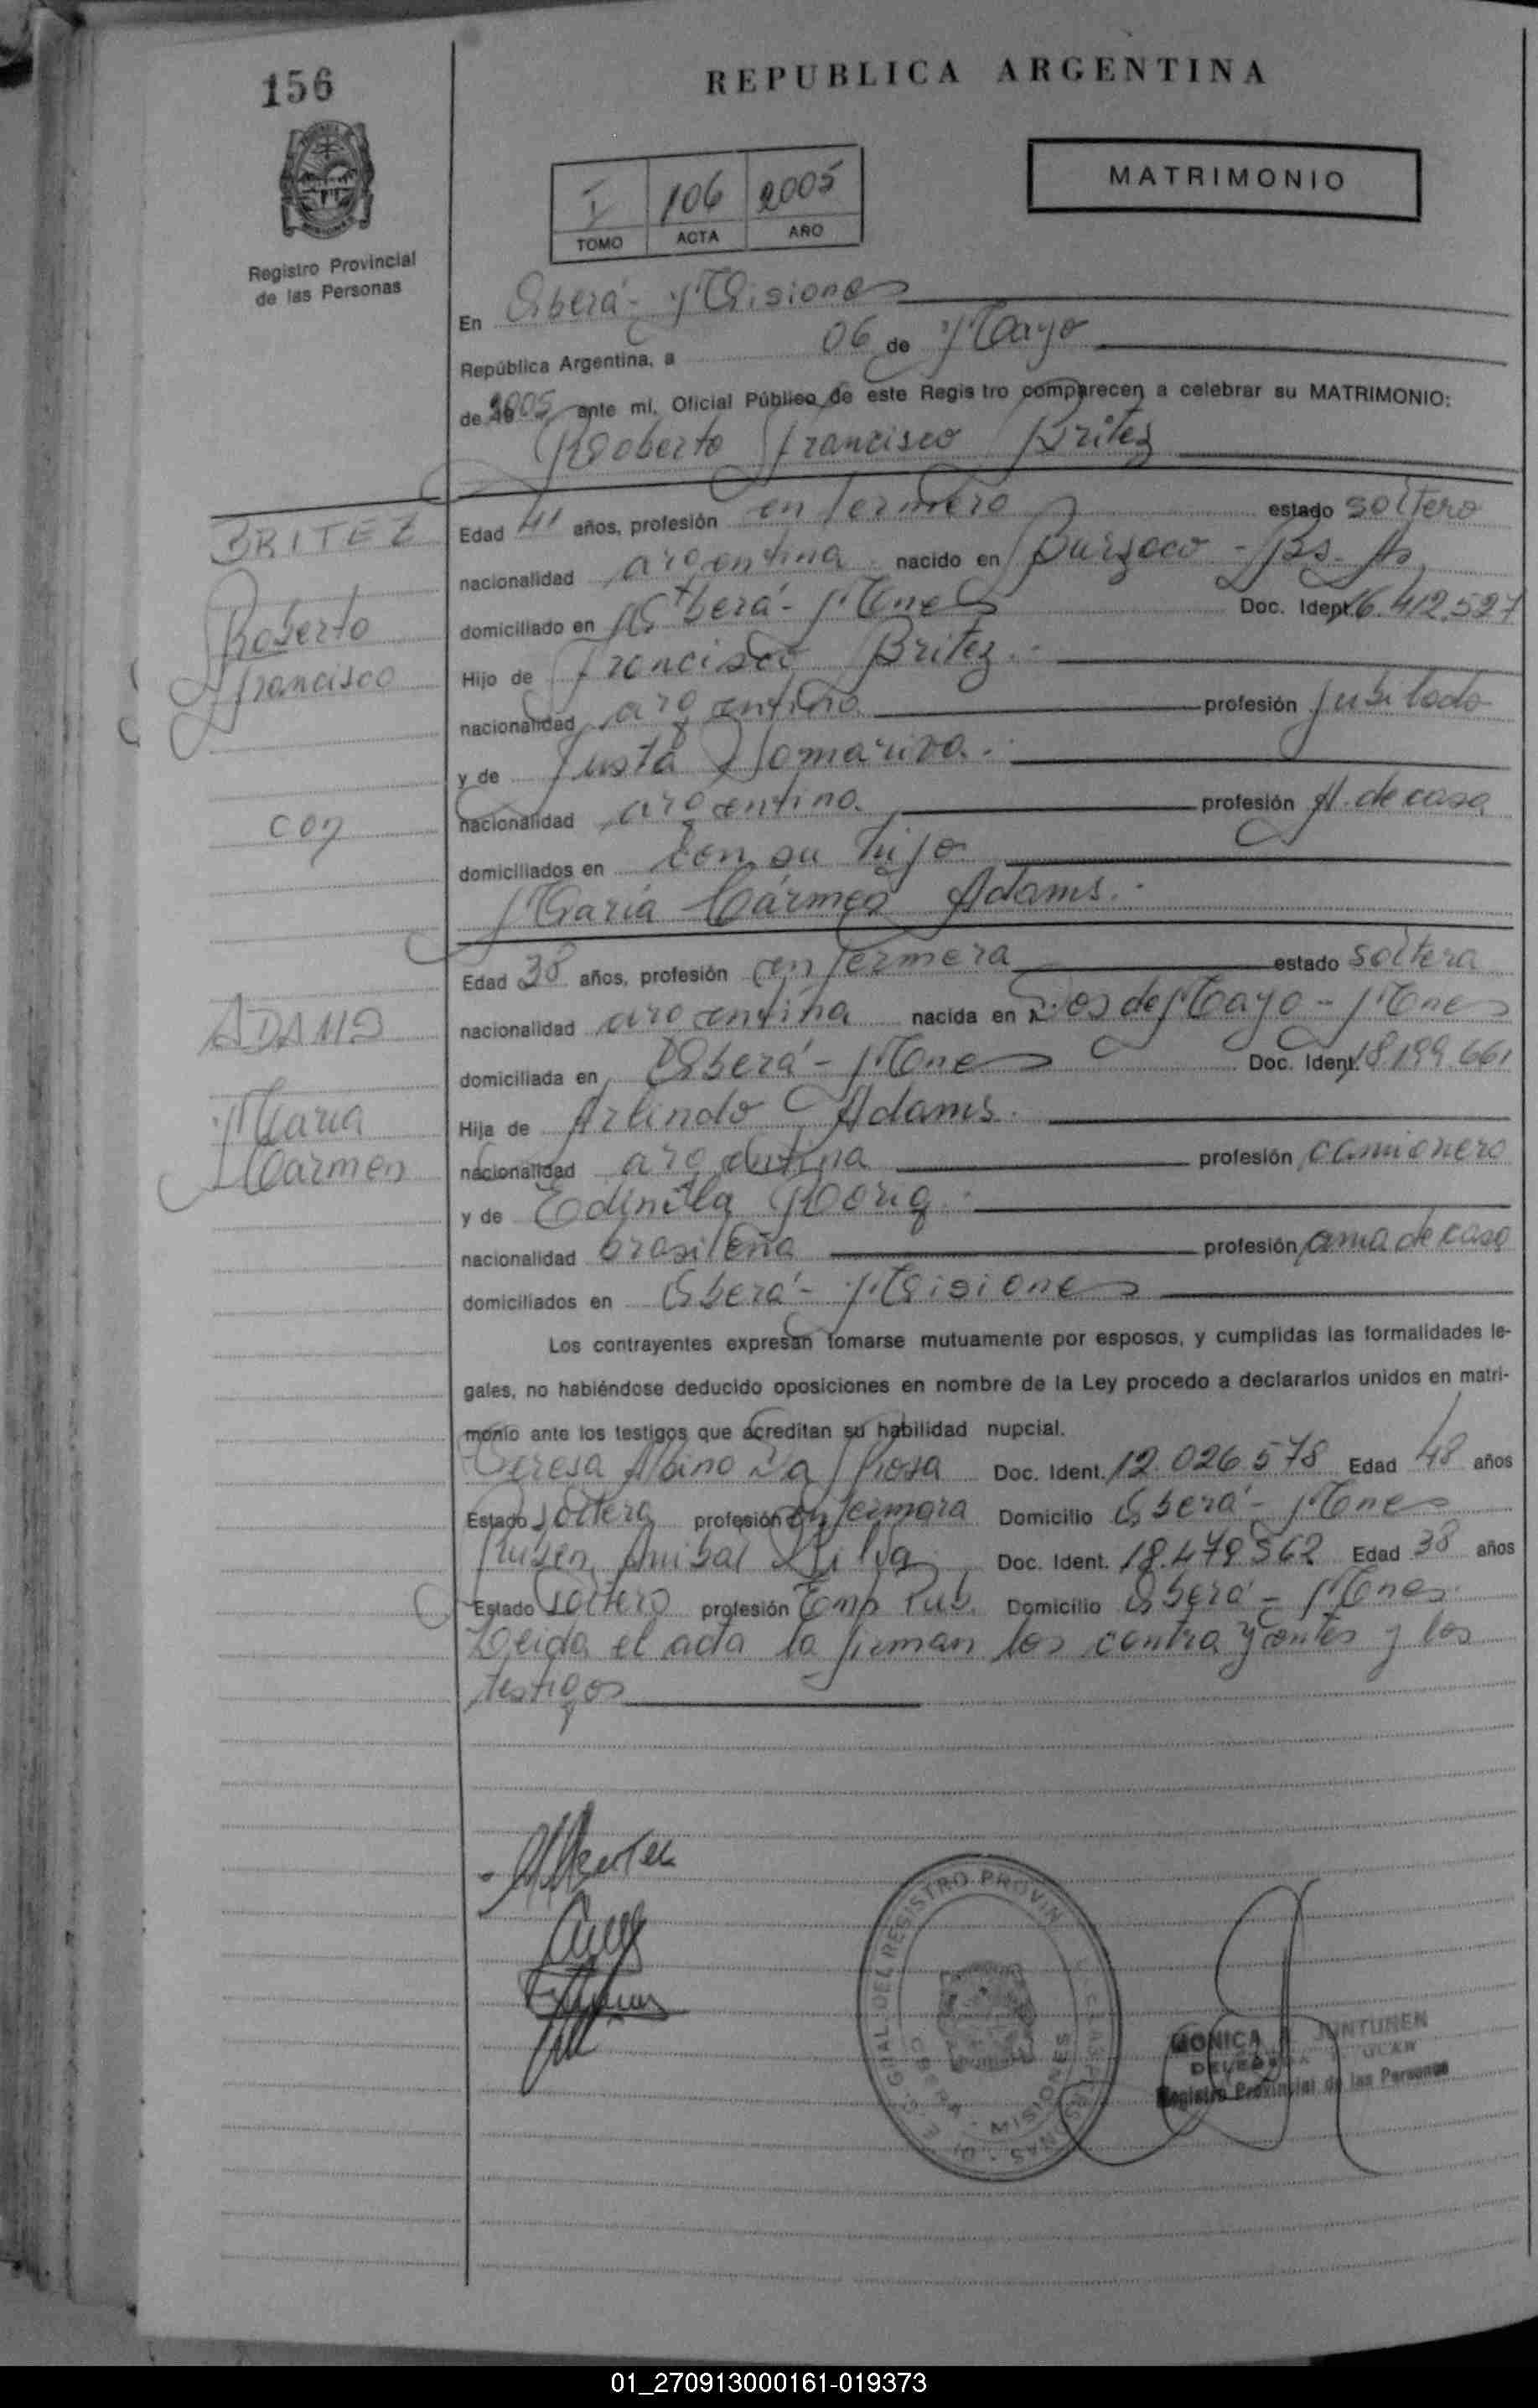 156
REPUBLICA ARGENTINA
MATRIMONIO
I 106 2005
TOMO ACTA AÑO
Registro Provincial
de las Personas
En Oberá - Misiones
República Argentina, a 06 de Mayo
de 2005 ante mí, Oficial Público de este Registro comparecen a celebrar su MATRIMONIO:
Roberto Francisco Britez
BRITEZ
Roberto
Francisco
con
ADAMS
Maria
Carmen
Edad 41 años, profesión enfermero estado soltero
nacionalidad argentina nacido en Burzaco - Bs. As.
domiciliado en Oberá - Mnes Doc. Ident. 16.412.527
Hijo de Francisco Britez.
nacionalidad argentino profesión Jubilado
y de Justa
nacionalidad argentina profesión A. de casa
domiciliados en con su hijo
María Cármen Adams.
Edad 38 años, profesión enfermera estado soltera
nacionalidad argentina nacida en Dos de Mayo - Mnes
domiciliada en Oberá - Mnes Doc. Ident. 18.199.661
Hija de Arlindo Adams.
nacionalidad argentina profesión camionero
y de
nacionalidad brasileña profesión ama de casa
domiciliados en Oberá - Misiones
Los contrayentes expresan tomarse mutuamente por esposos, y cumplidas las formalidades le-
gales, no habiéndose deducido oposiciones en nombre de la Ley procedo a declararlos unidos en matri-
monio ante los testigos que acreditan su habilidad nupcial.
Teresa Albino Da Rosa Doc. Ident. 12.026.578 Edad 48 años
Estado Soltera profesión enfermera Domicilio Oberá - Mnes
Ruben Anibal Silva Doc. Ident. 18.479.562 Edad 38 años
Estado Soltero profesión Emp. Pub. Domicilio Oberá - Mnes.
Leida el acta la firman los contrayentes y los
testigos
MONICA JUNTUNEN
Registro Provincial de las Personas
OBERA - MISIONES
01_270913000161-019373